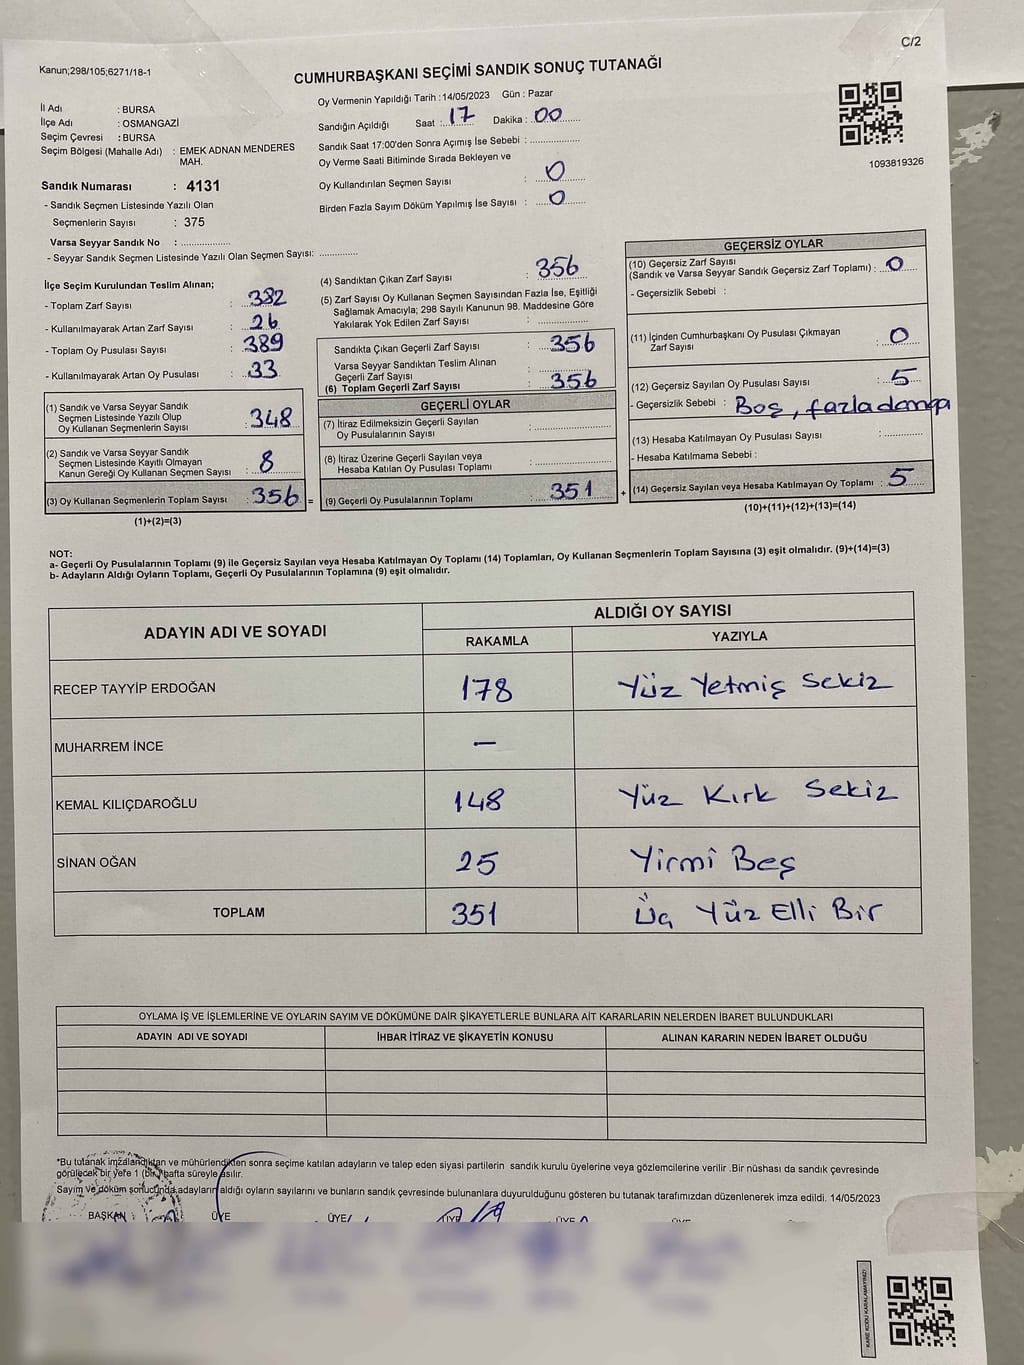 C/2
Kanun;298/105;6271/18-1
CUMHURBAŞKANI SEÇİMİ SANDIK SONUÇ TUTANAĞI
İl Adı : BURSA
İlçe Adı : OSMANGAZİ
Seçim Çevresi : BURSA
Seçim Bölgesi (Mahalle Adı) : EMEK ADNAN MENDERES
MAH.
Sandık Numarası : 4131
- Sandık Seçmen Listesinde Yazılı Olan
Seçmenlerin Sayısı : 375
Varsa Seyyar Sandık No : ..................
- Seyyar Sandık Seçmen Listesinde Yazılı Olan Seçmen Sayısı: ..............
Oy Vermenin Yapıldığı Tarih :14/05/2023 Gün : Pazar
Sandığın Açıldığı Saat : 17 Dakika : 00
Sandık Saat 17:00'den Sonra Açımış İse Sebebi : ..................
Oy Verme Saati Bitiminde Sırada Bekleyen ve
Oy Kullandırılan Seçmen Sayısı : 0
Birden Fazla Sayım Döküm Yapılmış İse Sayısı : 0
1093819326
İlçe Seçim Kurulundan Teslim Alınan;
- Toplam Zarf Sayısı : 382
- Kullanılmayarak Artan Zarf Sayısı : 26
- Toplam Oy Pusulası Sayısı : 389
- Kullanılmayarak Artan Oy Pusulası : 33
(1) Sandık ve Varsa Seyyar Sandık
Seçmen Listesinde Yazılı Olup
Oy Kullanan Seçmenlerin Sayısı : 348
(2) Sandık ve Varsa Seyyar Sandık
Seçmen Listesinde Kayıtlı Olmayan
Kanun Gereği Oy Kullanan Seçmen Sayısı : 8
(3) Oy Kullanan Seçmenlerin Toplam Sayısı : 356 =
(1)+(2)=(3)
(4) Sandıktan Çıkan Zarf Sayısı : 356
(5) Zarf Sayısı Oy Kullanan Seçmen Sayısından Fazla İse, Eşitliği
Sağlamak Amacıyla; 298 Sayılı Kanunun 98. Maddesine Göre
Yakılarak Yok Edilen Zarf Sayısı : ..................
Sandıkta Çıkan Geçerli Zarf Sayısı : 356
Varsa Seyyar Sandıktan Teslim Alınan
Geçerli Zarf Sayısı : ..................
(6) Toplam Geçerli Zarf Sayısı : 356
GEÇERLİ OYLAR
(7) İtiraz Edilmeksizin Geçerli Sayılan
Oy Pusulalarının Sayısı : ..................
(8) İtiraz Üzerine Geçerli Sayılan veya
Hesaba Katılan Oy Pusulası Toplamı : ..................
(9) Geçerli Oy Pusulalarının Toplamı : 351 +
GEÇERSİZ OYLAR
(10) Geçersiz Zarf Sayısı
(Sandık ve Varsa Seyyar Sandık Geçersiz Zarf Toplamı) : 0
- Geçersizlik Sebebi :
(11) İçinden Cumhurbaşkanı Oy Pusulası Çıkmayan
Zarf Sayısı : 0
(12) Geçersiz Sayılan Oy Pusulası Sayısı : 5
- Geçersizlik Sebebi : Boş, fazla damga
(13) Hesaba Katılmayan Oy Pusulası Sayısı : ............
- Hesaba Katılmama Sebebi :
(14) Geçersiz Sayılan veya Hesaba Katılmayan Oy Toplamı : 5
(10)+(11)+(12)+(13)=(14)
NOT:
a- Geçerli Oy Pusulalarının Toplamı (9) ile Geçersiz Sayılan veya Hesaba Katılmayan Oy Toplamı (14) Toplamları, Oy Kullanan Seçmenlerin Toplam Sayısına (3) eşit olmalıdır. (9)+(14)=(3)
b- Adayların Aldığı Oyların Toplamı, Geçerli Oy Pusulalarının Toplamına (9) eşit olmalıdır.
ADAYIN ADI VE SOYADI
ALDIĞI OY SAYISI
RAKAMLA YAZIYLA
RECEP TAYYİP ERDOĞAN 178 Yüz Yetmiş Sekiz
MUHARREM İNCE —
KEMAL KILIÇDAROĞLU 148 Yüz Kırk Sekiz
SİNAN OĞAN 25 Yirmi Beş
TOPLAM 351 Üç Yüz Elli Bir
OYLAMA İŞ VE İŞLEMLERİNE VE OYLARIN SAYIM VE DÖKÜMÜNE DAİR ŞİKAYETLERLE BUNLARA AİT KARARLARIN NELERDEN İBARET BULUNDUKLARI
ADAYIN ADI VE SOYADI İHBAR İTİRAZ VE ŞİKAYETİN KONUSU ALINAN KARARIN NEDEN İBARET OLDUĞU
*Bu tutanak imzalandıktan ve mühürlendikten sonra seçime katılan adayların ve talep eden siyasi partilerin sandık kurulu üyelerine veya gözlemcilerine verilir .Bir nüshası da sandık çevresinde
görülecek bir yere 1 (bir) hafta süreyle asılır.
Sayım ve döküm sonucunda adayların aldığı oyların sayılarını ve bunların sandık çevresinde bulunanlara duyurulduğunu gösteren bu tutanak tarafımızdan düzenlenerek imza edildi. 14/05/2023
BAŞKAN ÜYE ÜYE ÜYE ÜYE ÜYE
KARE KODU KARALAMAYINIZ!